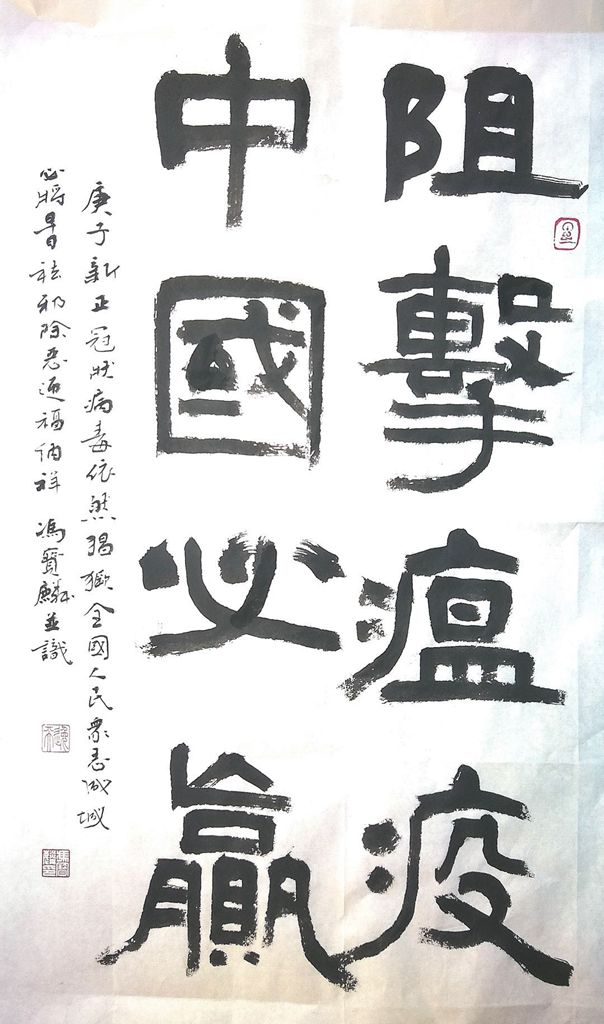 阻擊瘟疫
中國必贏
庚子新正冠狀病毒依然猖獗全國人民衆志成城
必將曾祛邪除惡迎福納祥 馮賢麟並識